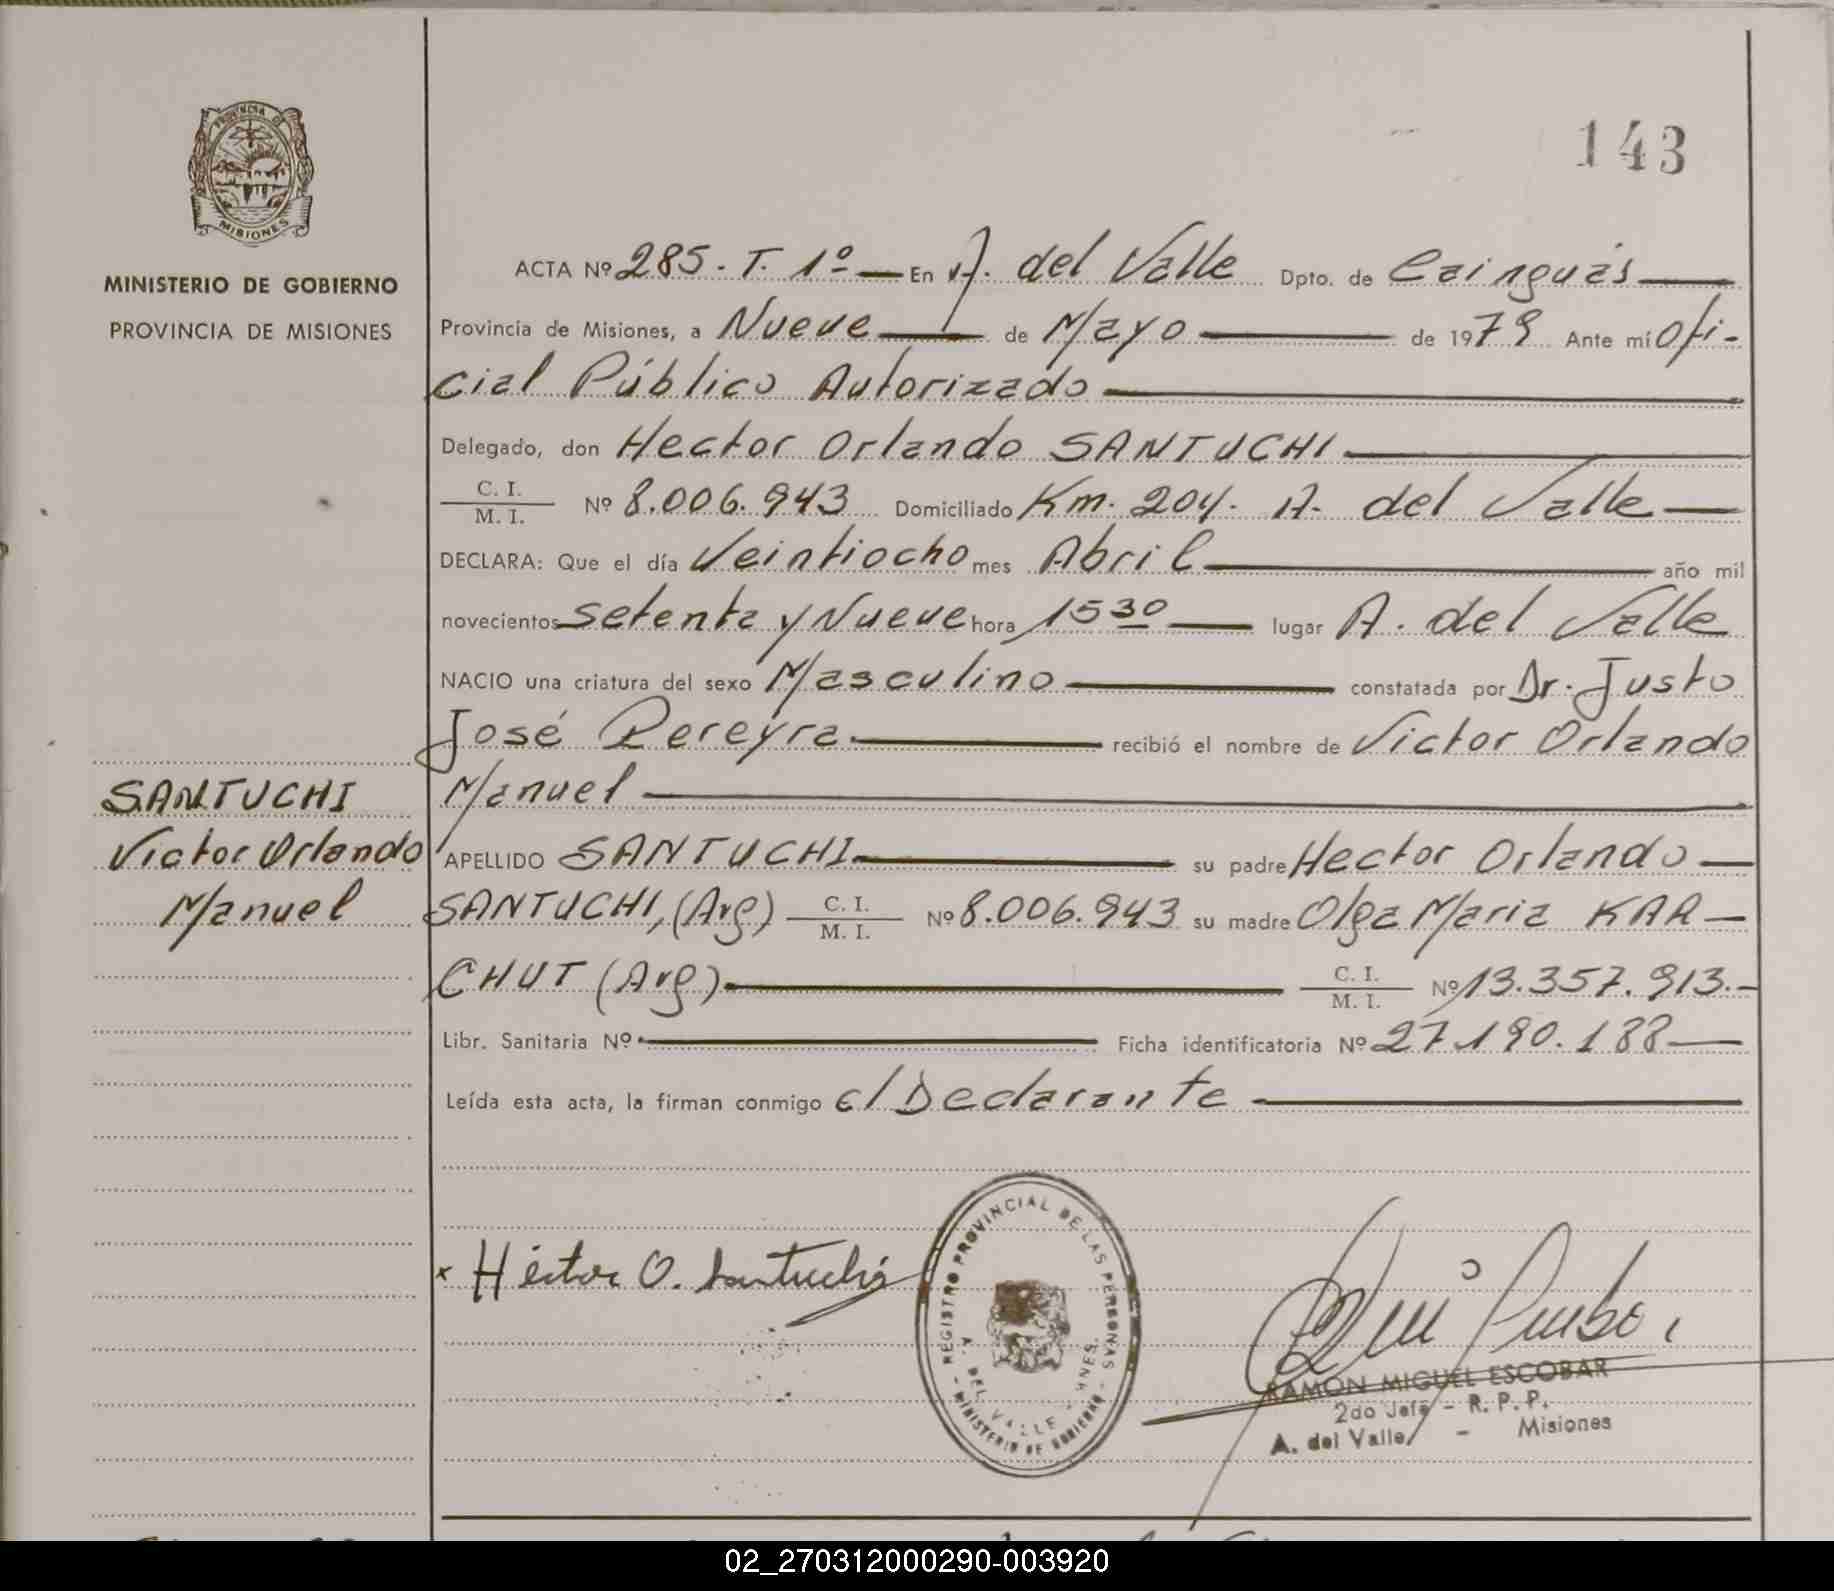 PROVINCIA DE
MISIONES
MINISTERIO DE GOBIERNO
PROVINCIA DE MISIONES
143
ACTA Nº 285. T. 1º — En A. del Valle Dpto. de Cainguás —
Provincia de Misiones, a Nueve — de Mayo — de 1979 Ante mí Ofi-
cial Público Autorizado —
Delegado, don Hector Orlando SANTUCHI —
C. I.
M. I. Nº 8.006.943 Domiciliado Km. 204. A. del Valle —
DECLARA: Que el día Veintiocho mes Abril — año mil
novecientos Setenta y Nueve hora 15 30 — lugar A. del Valle
NACIO una criatura del sexo Masculino — constatada por Dr. Justo
José Pereyra. — recibió el nombre de Victor Orlando
Manuel —
SANTUCHI
Victor Orlando
Manuel
APELLIDO SANTUCHI — su padre Hector Orlando —
SANTUCHI, (Arg) C. I. M. I. Nº 8.006.943 su madre Olga Maria KAR-
CHUT (Arg) — C. I. M. I. Nº 13.357.913. -
Libr. Sanitaria Nº — Ficha identificatoria Nº 27.190.188 —
Leída esta acta, la firman conmigo el Declarante —
x Héctor O. Santuchi
REGISTRO PROVINCIAL DE LAS PERSONAS
A. DEL VALLE - MNES.
- MINISTERIO DE GOBIERNO -
RAMON MIGUEL ESCOBAR
2do Jefe - R. P. P.
A. del Valle - Misiones
02_270312000290-003920